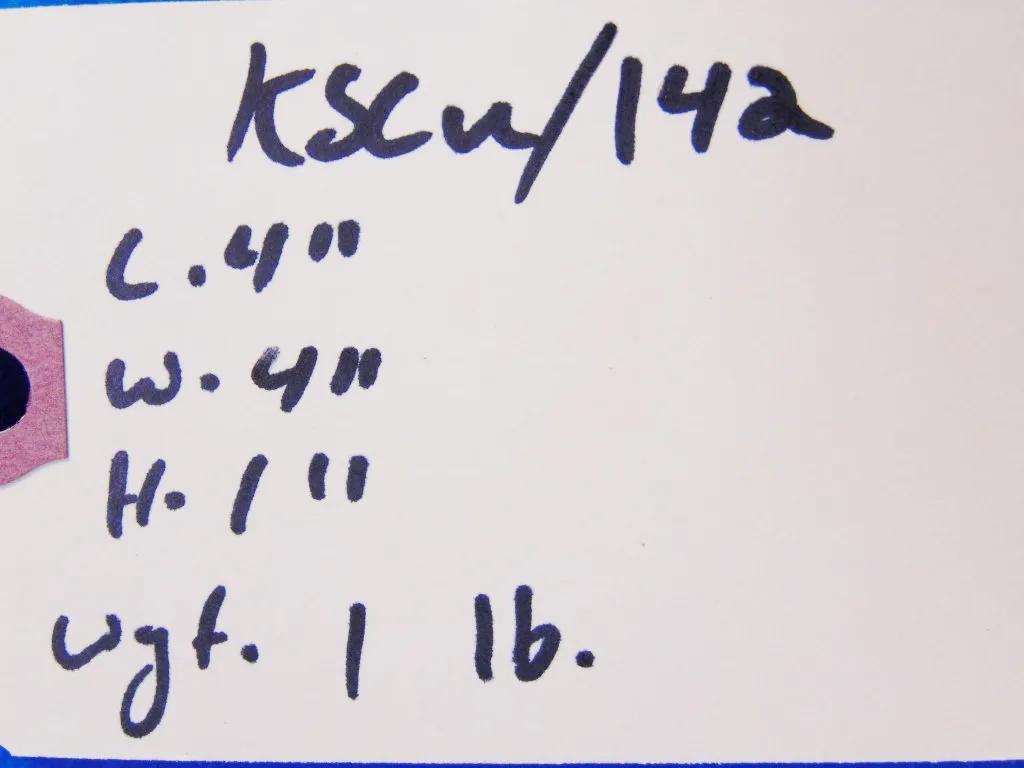 KSCu/142
L. 4"
W. 4"
H. 1"
Wgt. 1 lb.